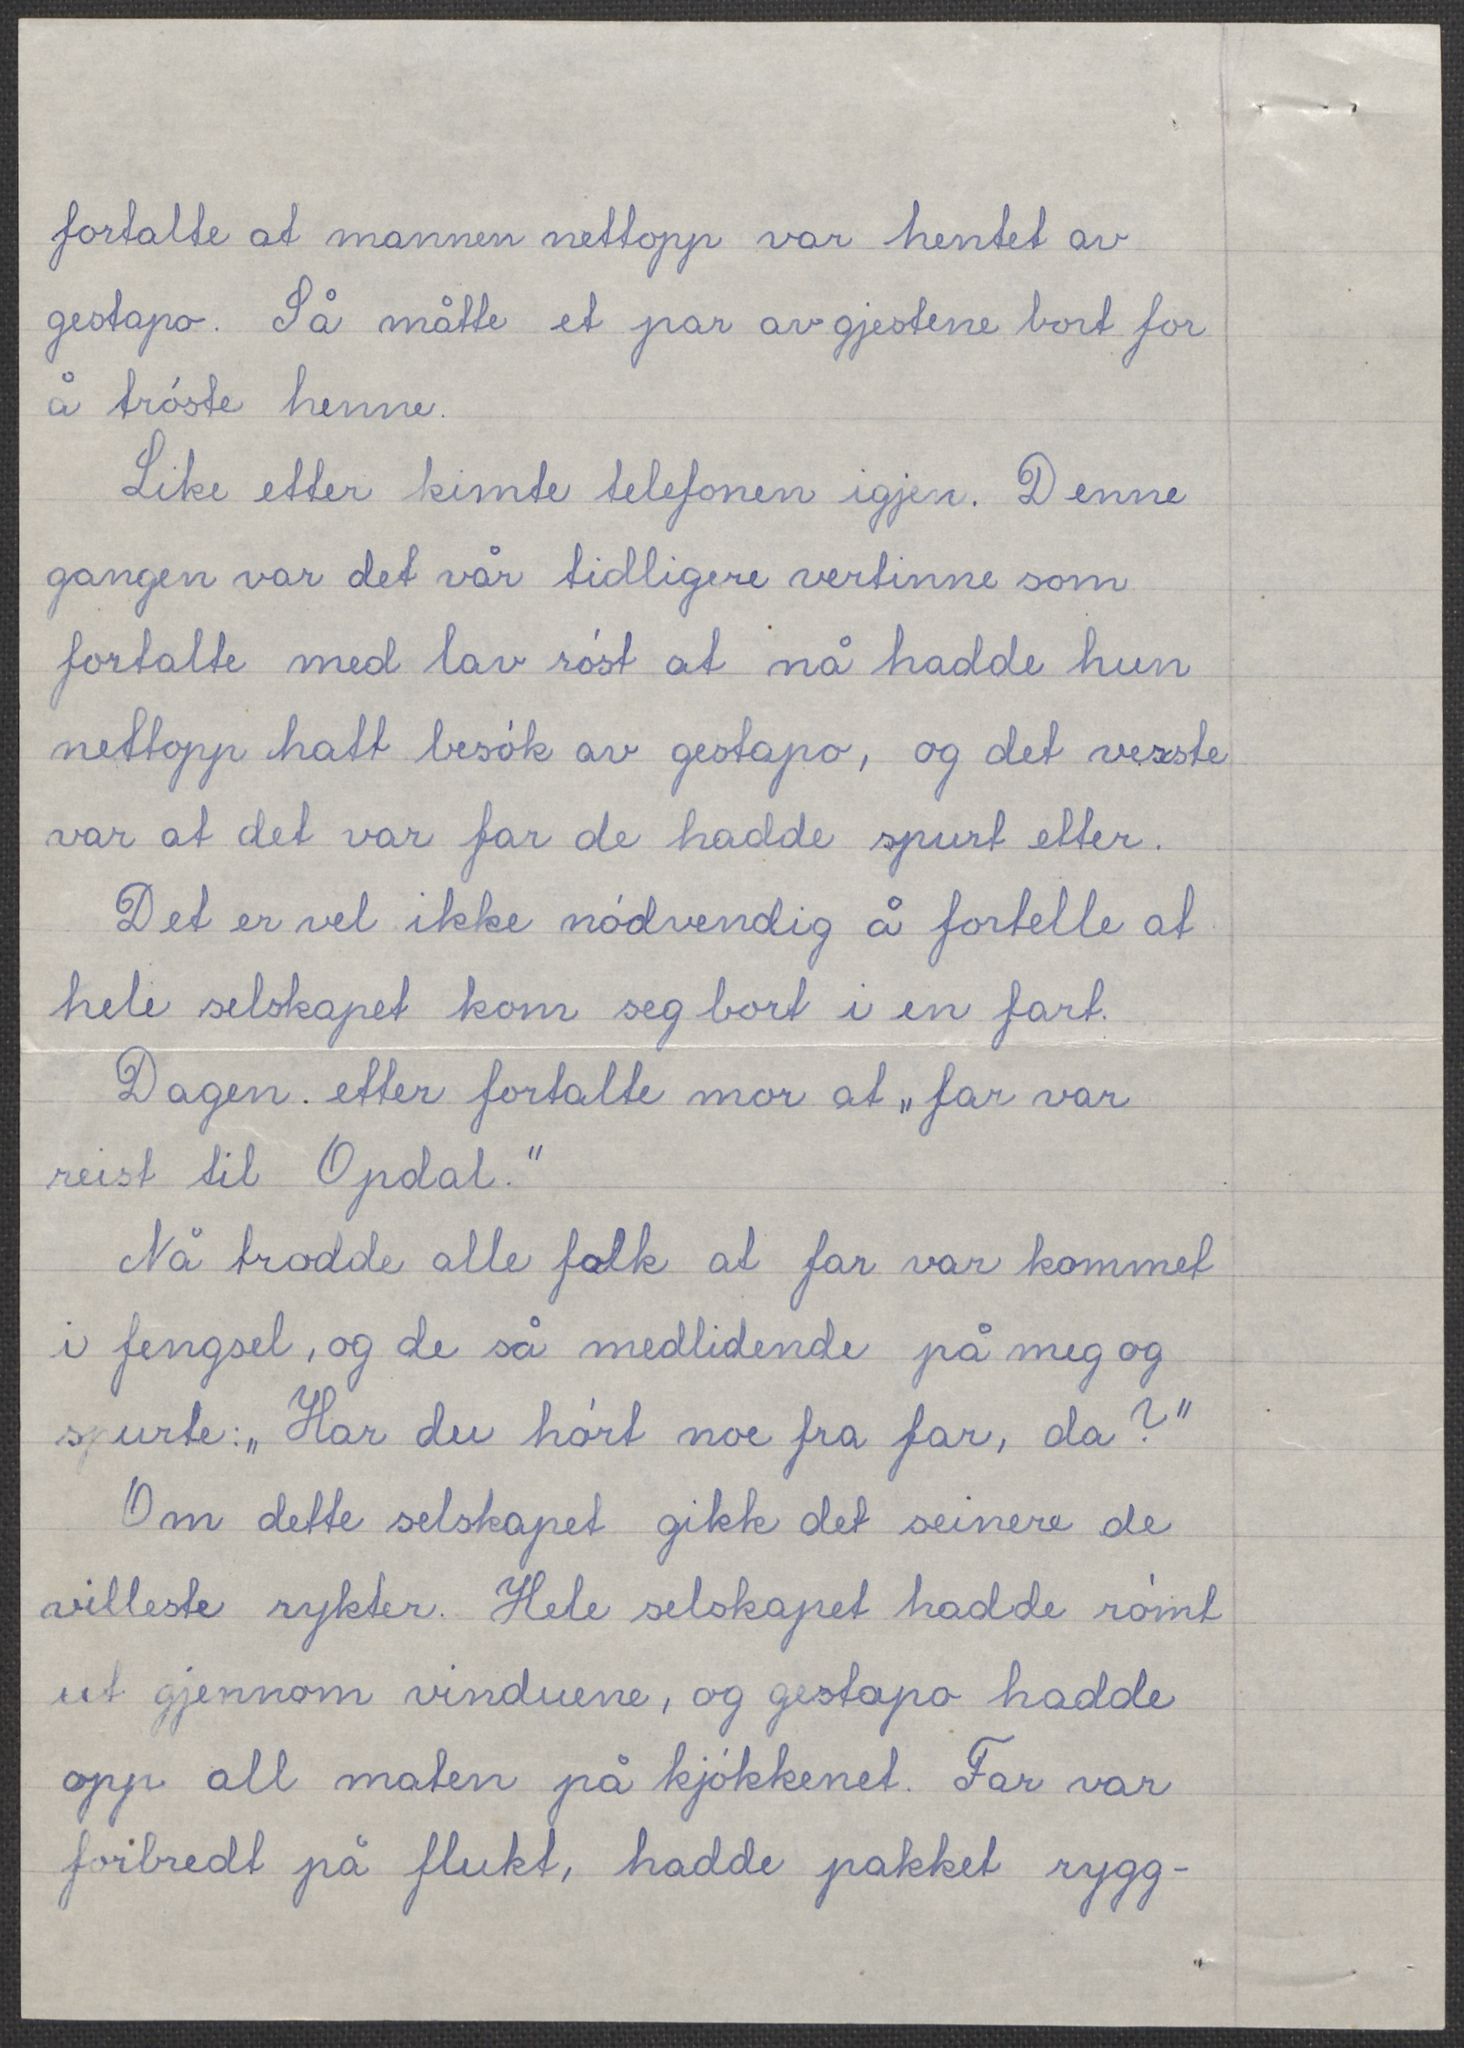 fortalte at mannen nettopp var hentet av
gestapo. Så måtte et par av gjestene bort for
å tróste henne.
Like etter kimte telefonen igjen. Denne
gangen var det vår tidligere vertinne som
fortalte med lav róst at nå hadde hun
nettopp hatt besók av gestapo, og det verste
var at det var far de hadde spurt etter.
Det er vel ikke nódvendig å fortelle at
hele selskapet kom seg bort i en fart.
Dagen. etter fortalte mor at „far var
reist til Opdal."
Nå trodde alle folk at far var kommet
i fengsel, og de så medlidende på meg og
spurte: „Har du hórt noe fra far, da?"
Om dette selskapet gikk det seinere de
villeste rykter. Hele selskapet hadde rómt
ut gjennom vinduene, og gestapo hadde
opp all maten på kjókkenet. Far var
foribredt på flukt, hadde pakket rygg-